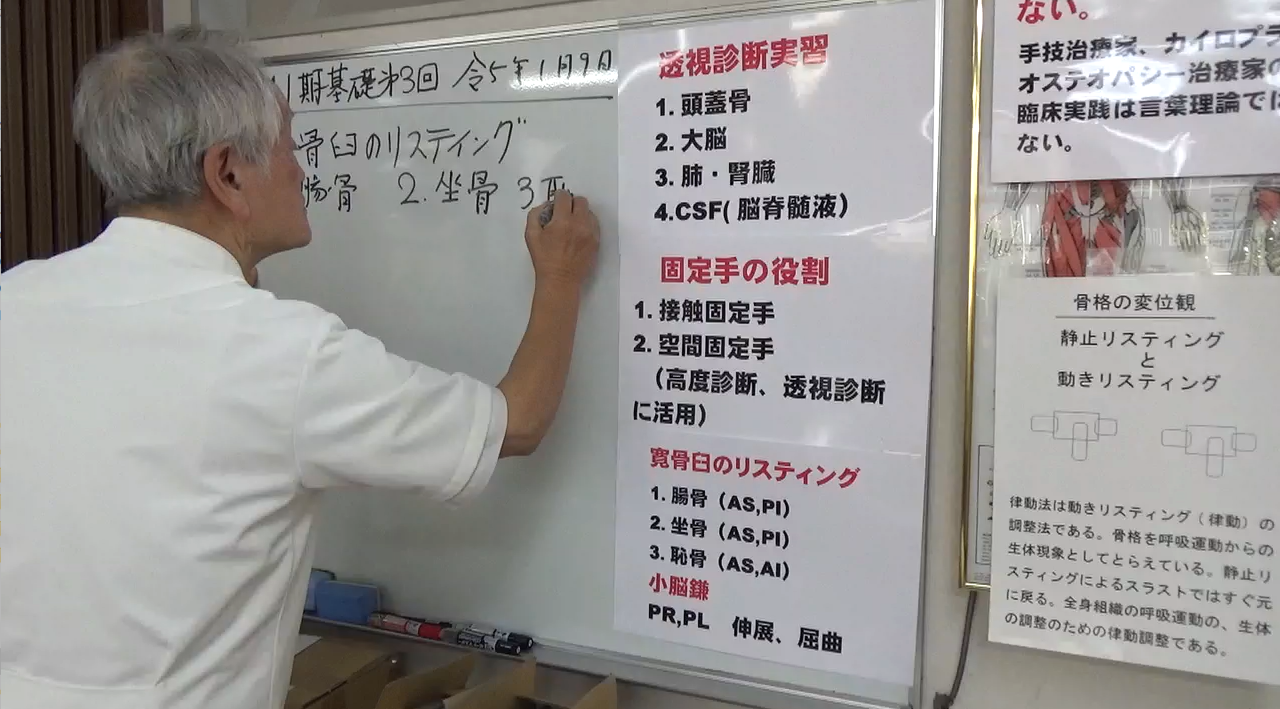 期基礎第3回 令5年1月9日
骨臼のリスティング
腸骨 2.坐骨 3
透視診断実習
1. 頭蓋骨
2. 大脳
3. 肺・腎臓
4.CSF( 脳脊髄液）
固定手の役割
1. 接触固定手
2. 空間固定手
（高度診断、透視診断
に活用）
寛骨臼のリスティング
1. 腸骨（AS,PI）
2. 坐骨（AS,PI）
3. 恥骨（AS,AI）
小脳鎌
PR,PL 伸展、屈曲
ない。
手技治療家、カイロプラ
オステオパシー治療家の
臨床実践は言葉理論では
ない。
骨格の変位観
静止リスティング
と
動きリスティング
律動法は動きリスティング（律動）の
調整法である。骨格を呼吸運動からの
生体現象としてとらえている。静止リ
スティングによるスラストではすぐ元
に戻る。全身組織の呼吸運動の、生体
の調整のための律動調整である。